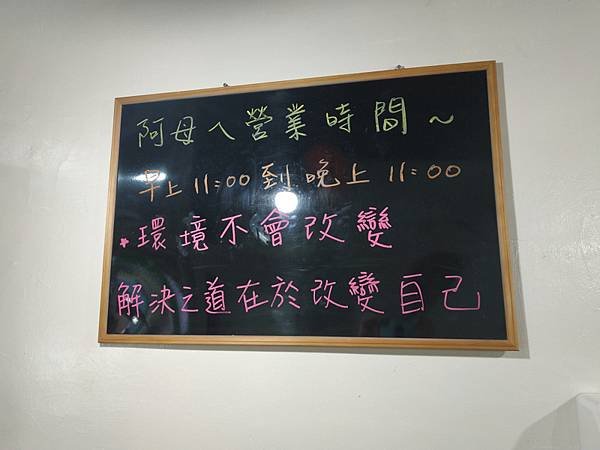 阿母ㄟ營業時間~
早上11:00到晚上11:00
*環境不會改變
解決之道在於改變自己